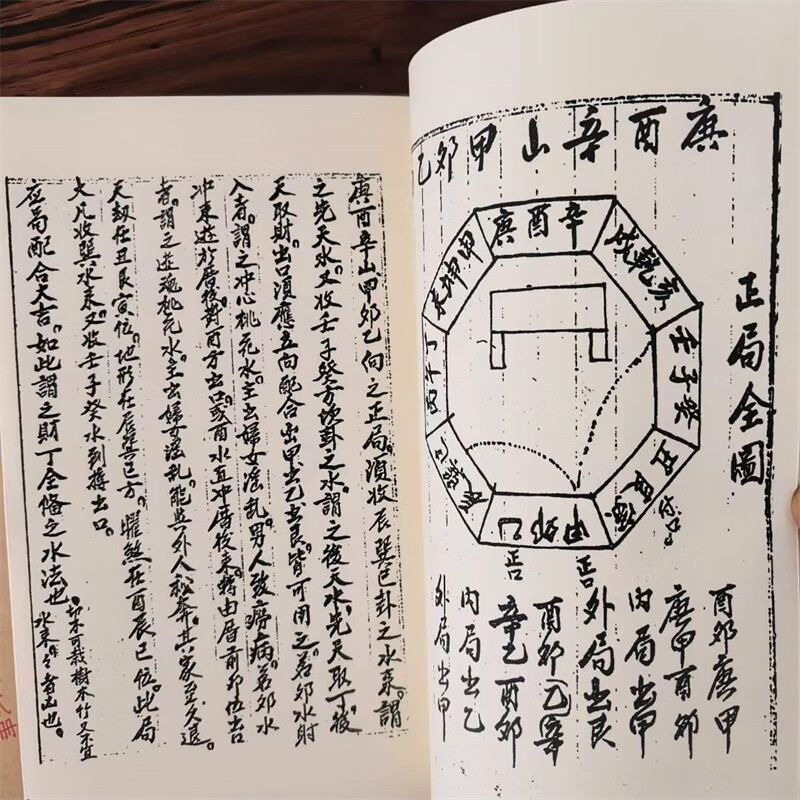 庚酉辛山甲卯乙
正局全圖
庚酉辛
戌乾亥
壬子癸
丑艮寅
甲卯乙
辰巽巳
丙午丁
未坤申
酉卯庚甲
庚甲酉卯
內局出甲
外局出艮
酉卯乙辛
辛乙酉卯
內局出乙
外局出甲
庚酉辛山甲卯乙向之正局。須收辰巽巴卦之水來。謂
之先天水。又收壬子癸方坎卦之水。謂之後天水。先天取丁。後
天取財。出口須應立向配合。出甲出乙出艮。皆可用之。若卯水射
入者。謂之冲心桃花水。主出婦女淫乱。男人致癆病。若卯水
冲來遊於厝後對酉方出口。或酉水直冲厝後。來轉由厝前卯位出口
者。謂之遊魂桃花水。主出婦女淫乱。能與外人私奔。其家至久退。
天刼在丑艮寅位。地形在辰巽巳方。曜煞在酉辰巳位。此局
大凡收巽水來。又收壬子癸水到出口。
局配合大吉。如此謂之財丁全俻之水法也。
切不可栽樹木竹又不宜
水來